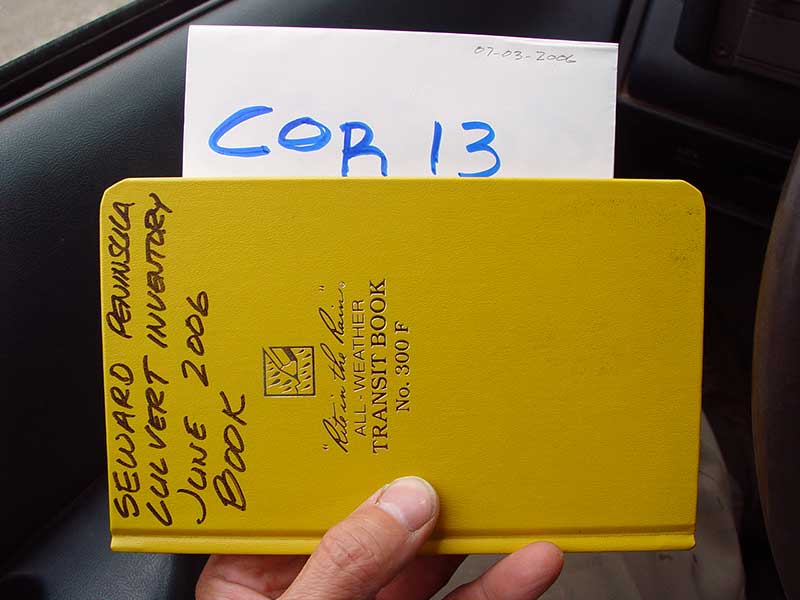 07-03-2006
COR 13
SEWARD PENINSULA
CULVERT INVENTORY
JUNE 2006
BOOK
"Rite in the Rain"®
ALL-WEATHER
TRANSIT BOOK
No. 300 F